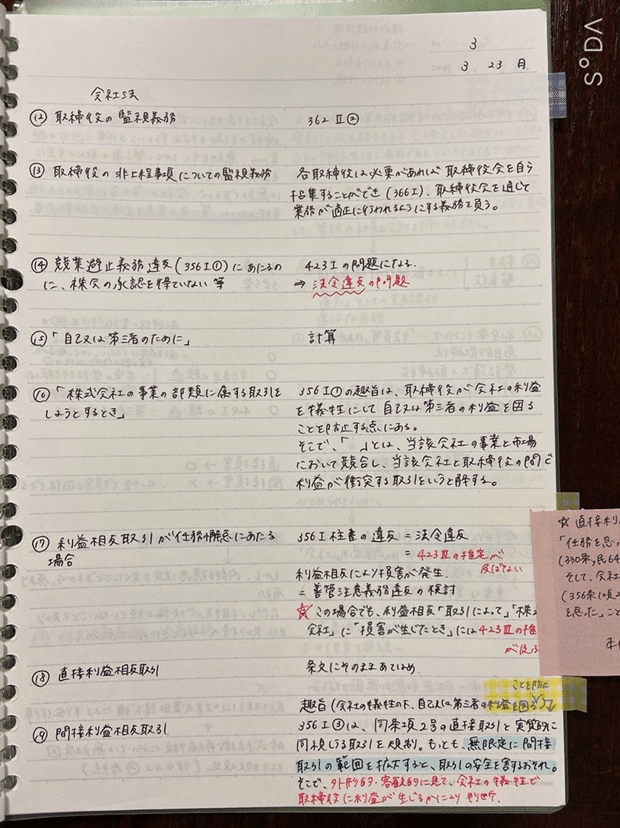 SODA
3
3 23 月
会社法
⑫ 取締役の監視義務
362 Ⅱ②
⑬ 取締役の非上程事項についての監視義務
各取締役は必要があれば取締役会を自ら
招集することができ(366Ⅰ)、取締役会を通じて
業務が適正に行われるようにする義務を負う。
⑭ 競業避止義務違反(356Ⅰ①)にあたるの
に、株会の承認を得ていない等
423Ⅰの問題になる。
⇒ 法令違反の問題
⑮ 「自己又は第三者のために」
計算
⑯ 「株式会社の事業の部類に属する取引を
しようとするとき」
356Ⅰ①の趣旨は、取締役が会社の利益
を犠牲にして自己又は第三者の利益を図る
ことを防止する点にある。
そこで、「 」とは、当該会社の事業と市場
において競合し、当該会社と取締役の間で
利益が衝突する取引をいうと解する。
⑰ 利益相反取引が任務懈怠にあたる
場合
356Ⅰ柱書の違反 = 法令違反
= 423Ⅲの推定が
及ばない
利益相反により損害が発生
= 善管注意義務違反の検討
☆ この場合でも、利益相反「取引によって」「株式
会社」に「損害が生じたとき」には 423Ⅲの推
が及ぶ
⑱ 直接利益相反取引
条文にそのままあてはめ
ことを防止
⑲ 間接利益相反取引
趣旨(会社の犠牲の下、自己又は第三者の利益を図る)
356Ⅰ③は、同条項2号の直接取引と実質的に
同視しうる取引を規制。もっとも、無限定に間接
取引の範囲を拡大すると、取引の安全を害するおそれ。
そこで、外形的・客観的に見て、会社の犠牲で
取締役に利益が生じるかにより判断。
☆ 直接利
「任務を怠
(330条,民64
そして、会社
(356条1項2
を怠った」こと